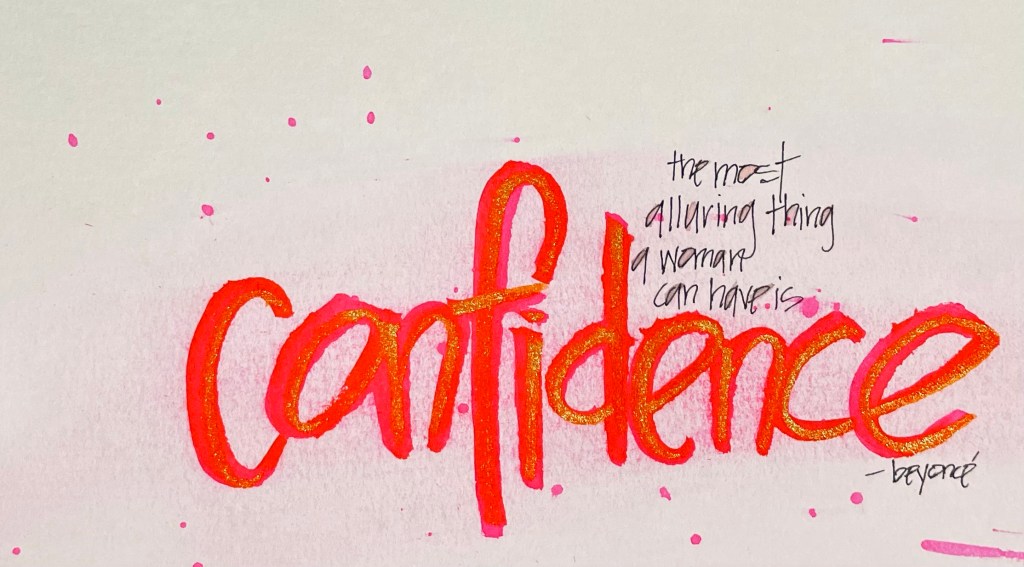 the most
alluring thing
a woman
can have is
confidence
– beyoncé